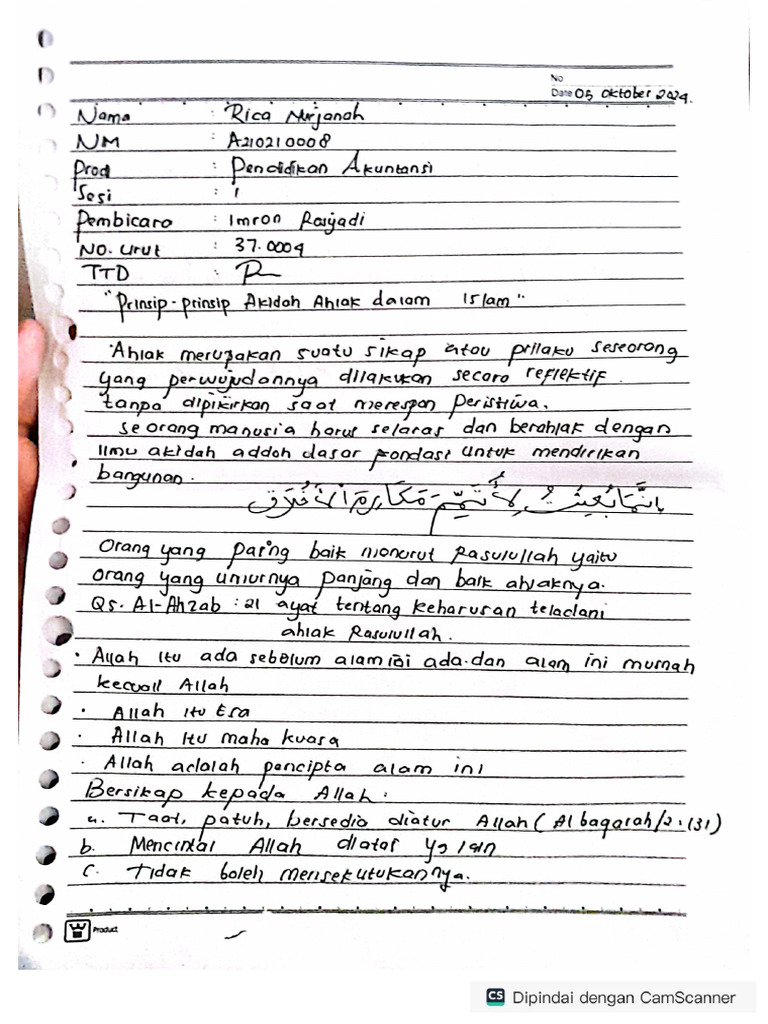 No
Date 05 Oktober 2024.
Nama : Rica Nurjanah
NIM : A210210008
Prod : Pendidikan Akuntansi
Sesi : 1
Pembicara : Imron Rosyadi
No. Urut : 37.0004
TTD :
"Prinsip-prinsip Akidah Ahlak dalam Islam"
Ahlak merupakan suatu sikap atau prilaku seseorang
yang perwujudannya dilakukan secara reflektif.
tanpa dipikirkan saat merespan Peristiwa.
Seorang manusia harus selaras dan berahlak dengan
Ilmu akidah addoh dasar fondasi untuk mendirikan
bangunan.
إنما بعثت لأتمم مكارم الأخلاق
Orang yang paring baik menurut Rasulullah yaitu
orang yang umurnya panjang dan baik ahlaknya.
Qs. Al-Ahzab : 21 ayat tentang keharusan teladani
ahlak Rasulullah.
• Allah itu ada sebelum alam ini ada. dan alam ini musnah
kecuali Allah
• Allah itu Esa
• Allah itu maha kuasa
• Allah adalah pencipta alam ini
Bersikap kepada Allah :
a. Taat, patuh, bersedia diatur Allah (Al baqarah/2:131)
b. Mencintai Allah diatas yg lain
c. Tidak boleh mensekutukannya.
Product
CS Dipindai dengan CamScanner